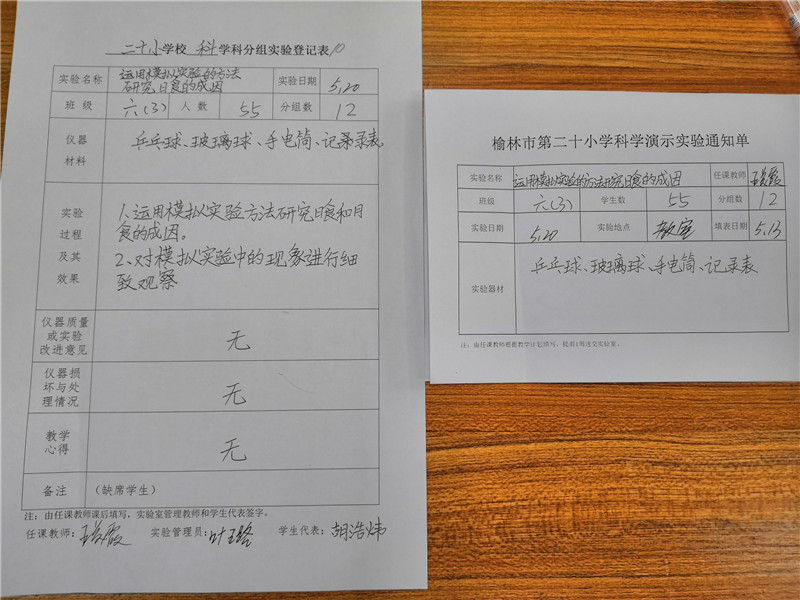 二十小学校 科学科分组实验登记表10
实验名称 运用模拟实验的方法
研究日食的成因 实验日期 5.20
班 级 六(3) 人 数 55 分组数 12
仪器
材料 乒乓球、玻璃球、手电筒、记录录表
实验
过程
及其
效果 1、运用模拟实验方法研究日食和月
食的成因。
2、对模拟实验中的现象进行细
致观察
仪器质量
或实验
改进意见 无
仪器损
坏与处
理情况 无
教学
心得 无
备注 (缺席学生)
注:由任课教师课后填写,实验室管理教师和学生代表签字。
任课教师: 实验管理员: 学生代表:胡浩炜
榆林市第二十小学科学演示实验通知单
实验名称 运用模拟实验的方法研究日食的成因 任课教师
班级 六(3) 学生数 55 分组数 12
实验日期 5.20 实验地点 教室 填表日期 5.13
实验器材 乒乓球、玻璃球、手电筒、记录表
注:由任课教师根据教学计划填写,提前1周送交实验室。